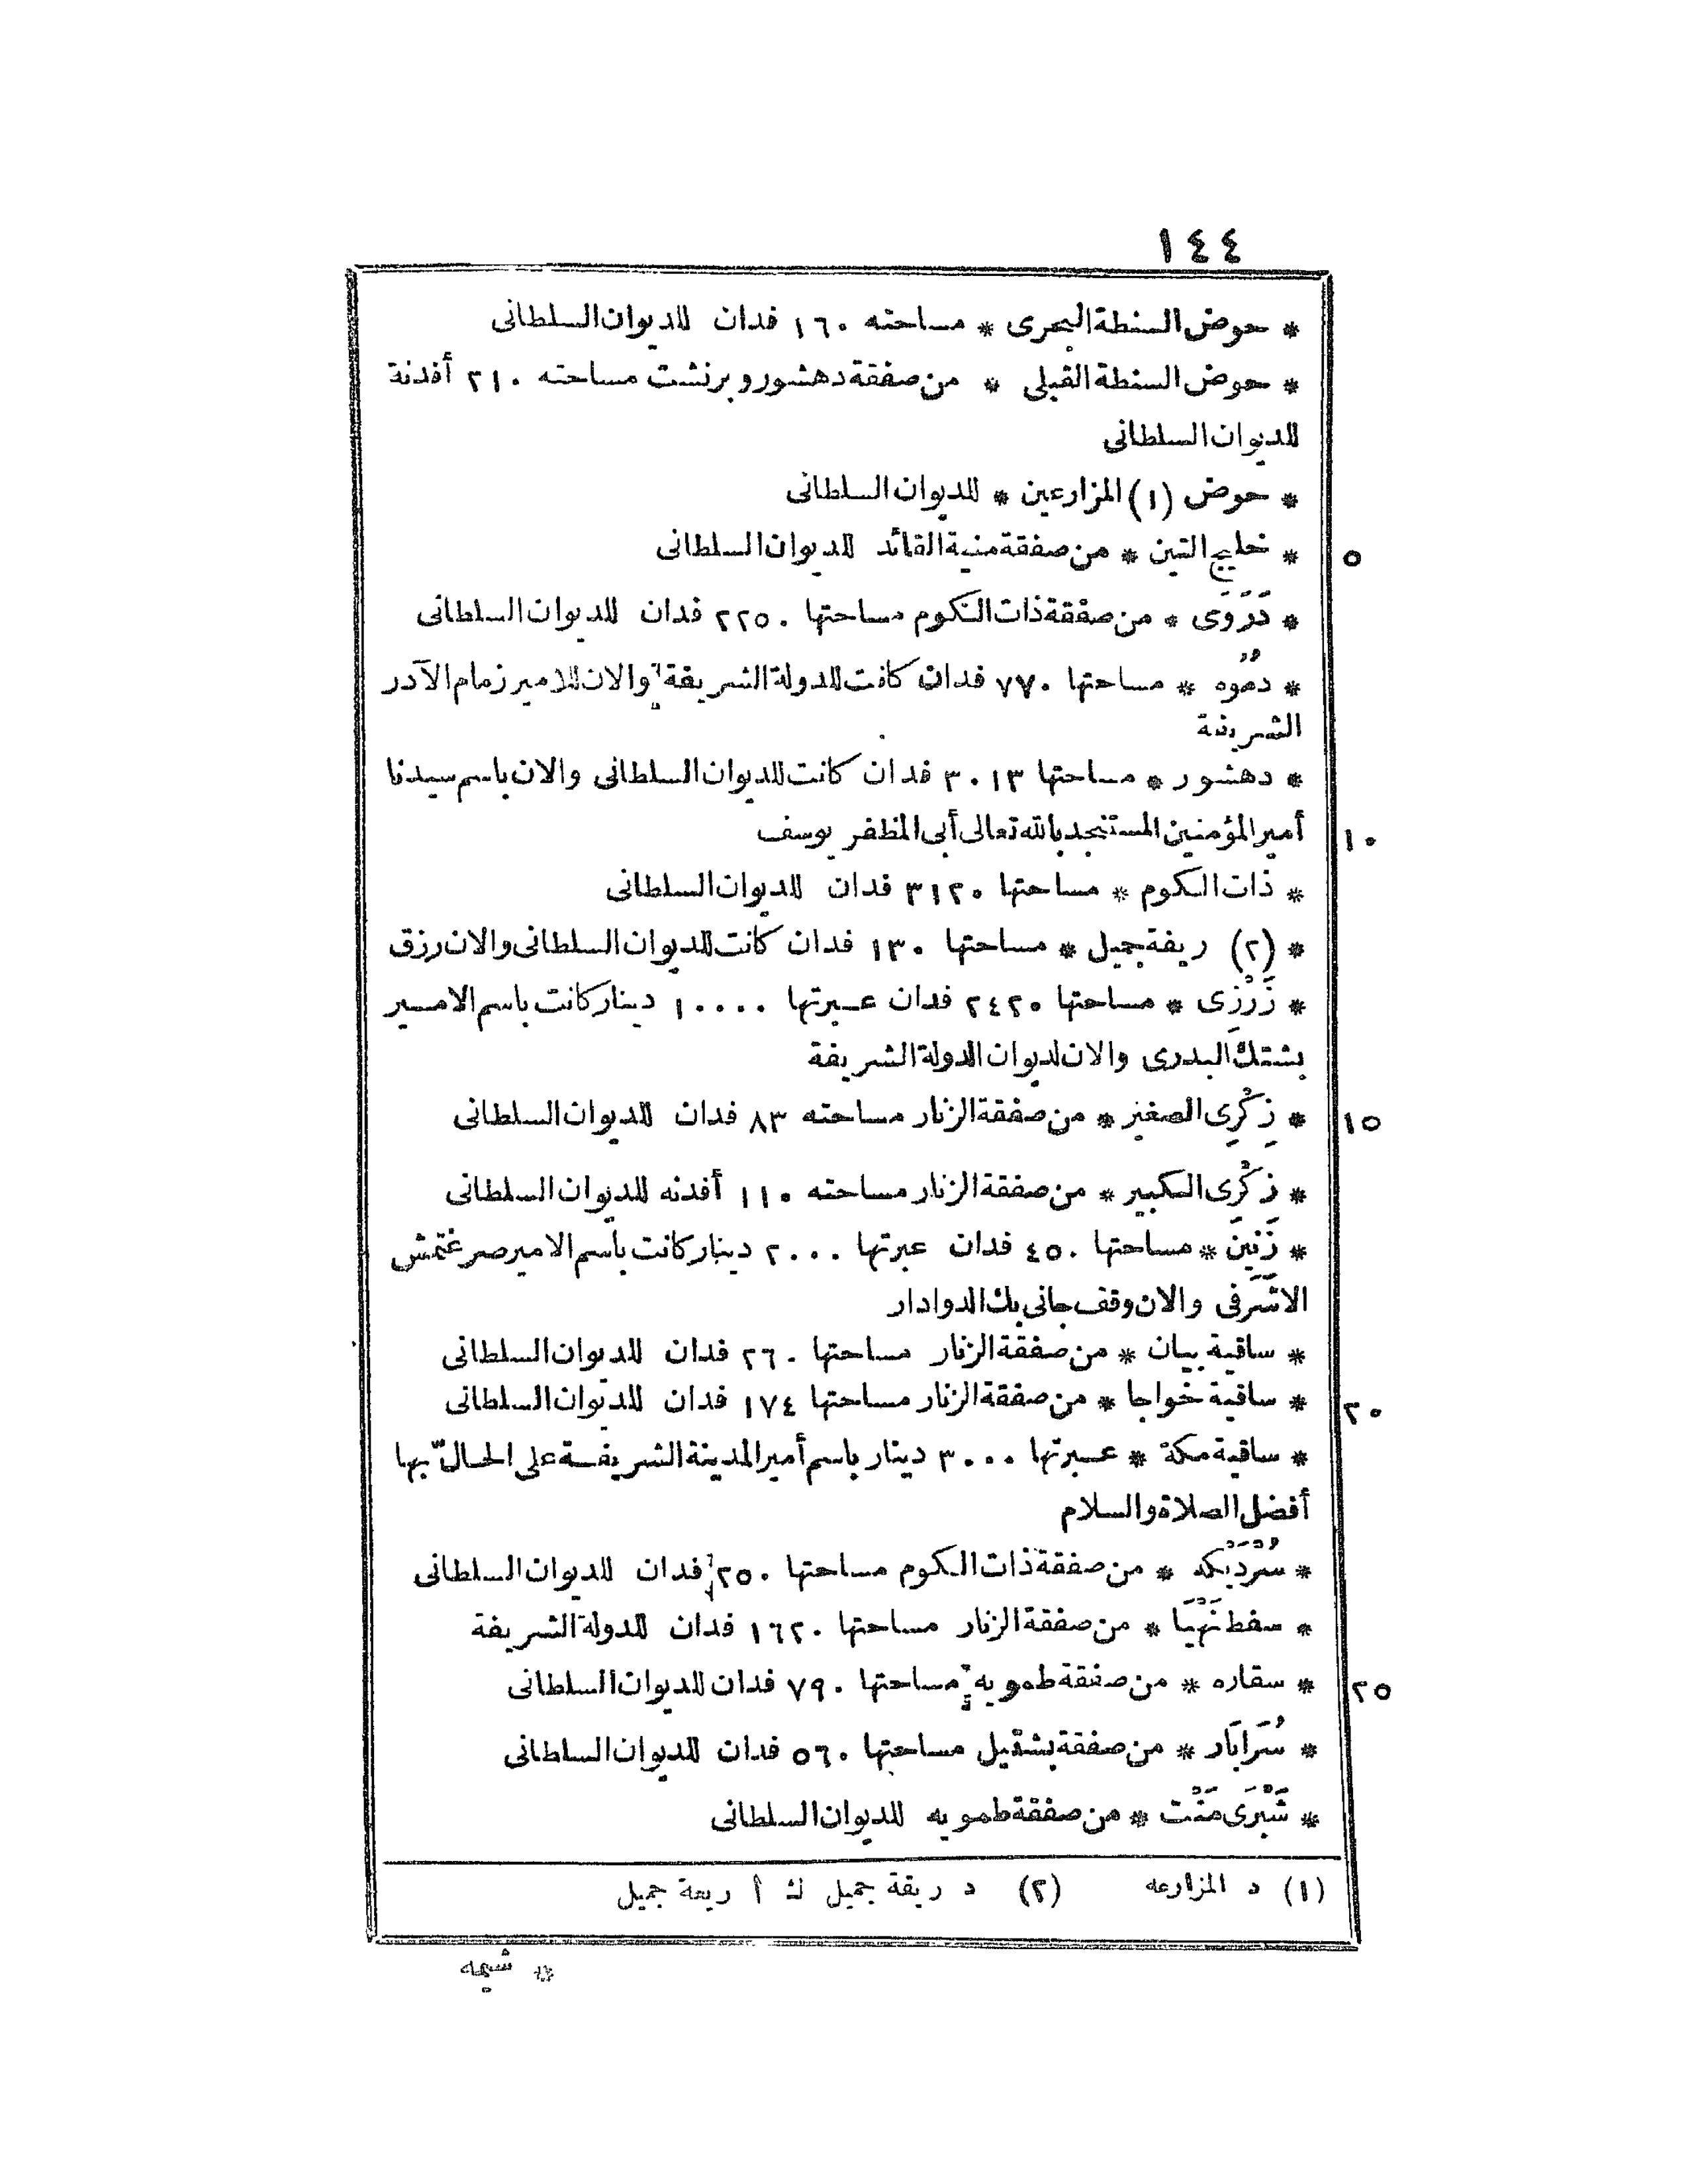 ١٤٤
* حوض السنطة البحرى * مساحته ١٦٠ فدان للديوان السلطانى
* حوض السنطة القبلى * من صفقة دهشور وبرنشت مساحته ٢١٠ أفدنة
للديوان السلطانى
* حوض (١) المزارعين * للديوان السلطانى
* خليج التين * من صفقة منية القائد للديوان السلطانى ٥
* دَرَوَى * من صفقة ذات الكوم مساحتها ٢٢٥٠ فدان للديوان السلطانى
* دمُوه * مساحتها ٧٧٠ فدان كانت للدولة الشريفة والان للامير زمام الآدر
الشريفة
* دهشور * مساحتها ٣٠١٣ فدان كانت للديوان السلطانى والان باسم سيدنا
أمير المؤمنين المستنجد بالله تعالى أبى المظفر يوسف ١٠
* ذات الكوم * مساحتها ٣١٢٠ فدان للديوان السلطانى
* (٢) ريفة جميل * مساحتها ١٣٠ فدان كانت للديوان السلطانى والان رزق
* زَرْزى * مساحتها ٢٤٢٠ فدان عبرتها ١٠٠٠٠ دينار كانت باسم الامير
بشتك البدرى والان لديوان الدولة الشريفة
* زِكْرِى الصغير * من صفقة الزنار مساحته ٨٣ فدان للديوان السلطانى ١٥
* زكْرى الكبير * من صفقة الزنار مساحته ١١٠ أفدنه للديوان السلطانى
* زَنَيْن * مساحتها ٤٥٠ فدان عبرتها ٢٠٠٠ دينار كانت باسم الامير صرغتمش
الاشرفى والان وقف جانى بك الدوادار
* ساقية بيان * من صفقة الزنار مساحتها ٢٦٠ فدان للديوان السلطانى
* ساقية خواجا * من صفقة الزنار مساحتها ١٧٤ فدان للديوان السلطانى ٢٠
* ساقية مكة * عبرتها ٣٠٠٠ دينار باسم أمير المدينة الشريفة على الحالّ بها
أفضل الصلاة والسلام
* سُرْدَيْكه * من صفقة ذات الكوم مساحتها ٢٥٠ فدان للديوان السلطانى
* سفط نَهْيَا * من صفقة الزنار مساحتها ١٦٢٠ فدان للدولة الشريفة
* سقاره * من صفقة طمويه مساحتها ٧٩٠ فدان للديوان السلطانى ٢٥
* سُرَابَار * من صفقة بشتيل مساحتها ٥٦٠ فدان للديوان السلطانى
* شَبْرَى مَنْت * من صفقة طمويه للديوان السلطانى
(١) د المزارعه (٢) د ريقة جميل ك أ ريعة جميل
* شيمه